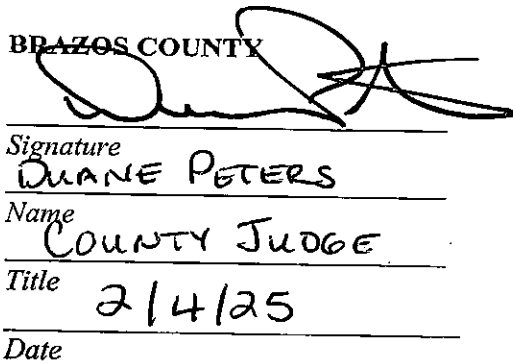 BRAZOS COUNTY
Signature
DUANE PETERS
Name
COUNTY JUDGE
Title
2/4/25
Date